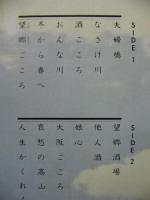 SIDE 1
夫婦橋
なさけ川
酒ごころ
おんな川
冬から春へ
望郷ごころ
SIDE 2
望郷酒場
他人酒
娘心
大阪ごころ
哀愁の高山
人生かくれん